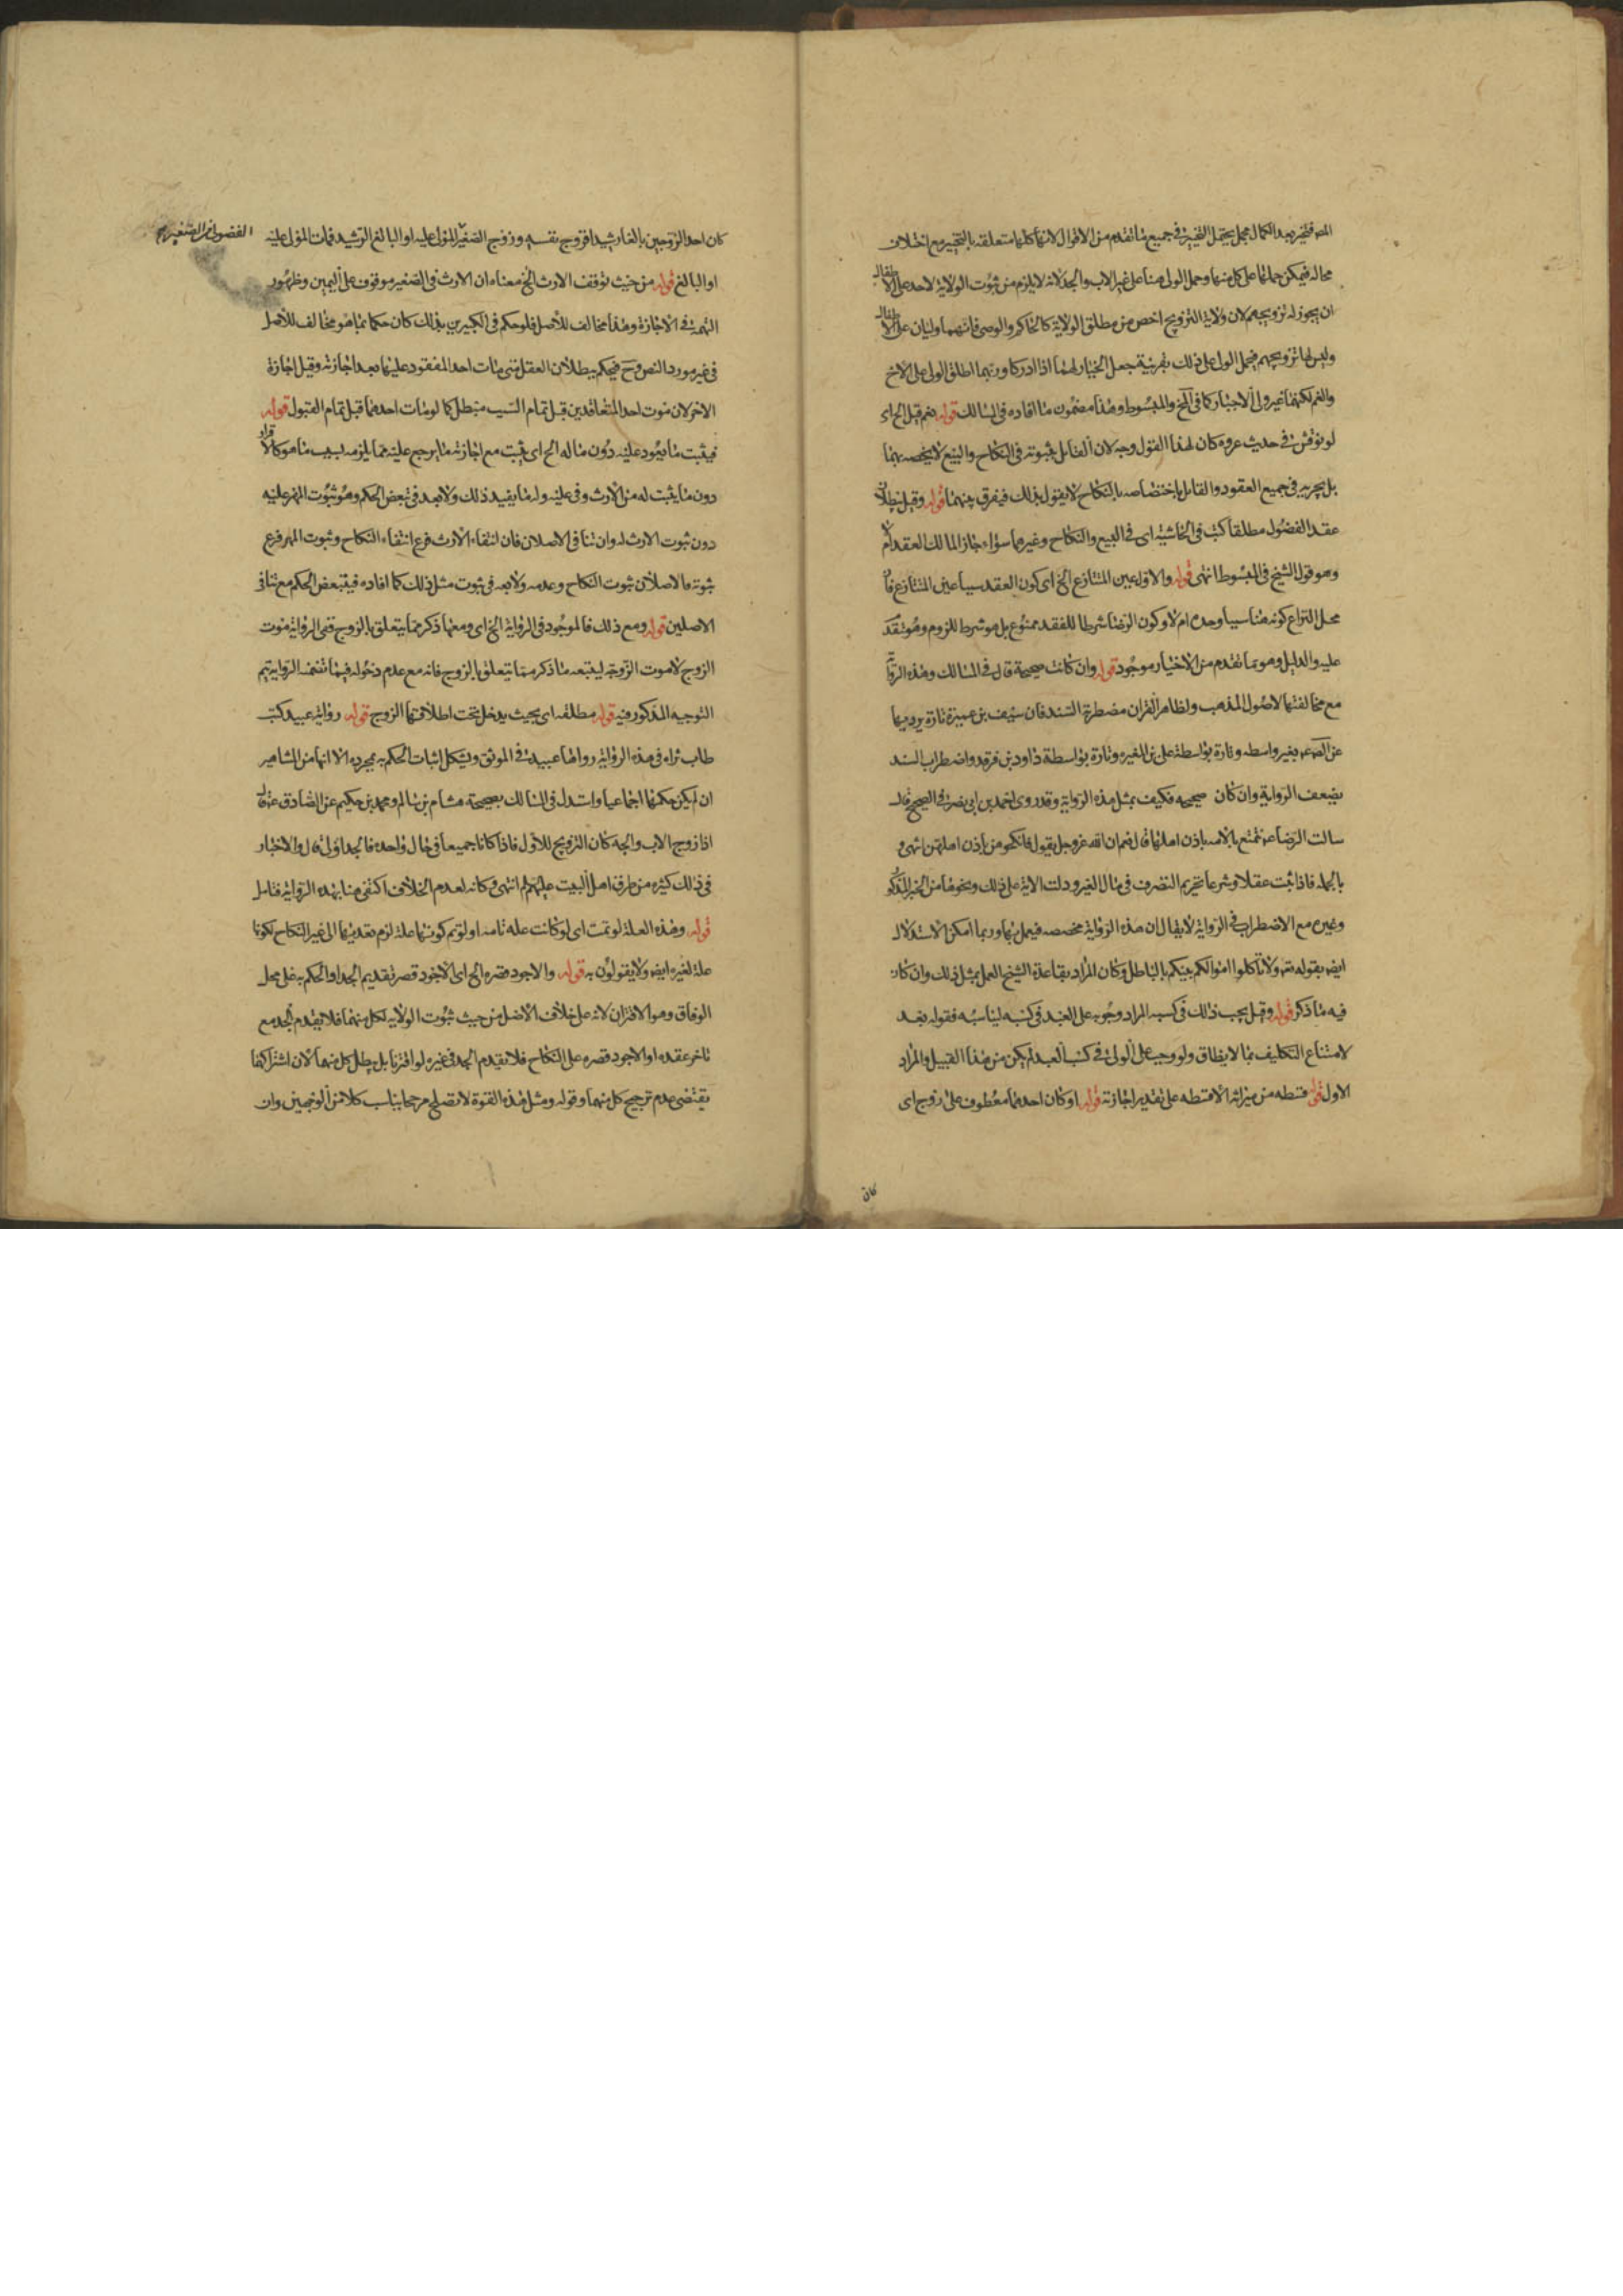 المهر فتخير بعد الكمال مجمل يحتمل التخيير في جميع ما تقدم من الاقوال لانها كلها متعلقة بالتخيير مع اختلاف
محاله فيمكن حملها على كل منها وحمل الولى هنا على غير الاب والجد لانه لا يلزم من ثبوت الولاية لاحد على الاطفال
ان يجوز له تزويجهم لان ولاية التزويج اخص من مطلق الولاية كالحاكم والوصى فانهما وليان على الاطفال
وليس لهما تزويجهم فيحمل الولى على ذلك بقرينة جعل الخيار لهما اذا ادركا وربما اطلق الولى على الاخ
والعم لكنهما غير ولى الاجبار كما في الخ والمبسوط وهذا مضمون ما افاده في المسالك قوله نعم قيل الخ اى
لو نوقش في حديث عروه كان لهذا القول وجه لان القائل بثبوته في النكاح والبيع لا يخصه بهما
بل يجريه في جميع العقود والقائل باختصاصه بالنكاح لا يقول بذلك فيفرق بينهما قوله وقيل ببطلان
عقد الفضول مطلقا كتب في الحاشية اى في البيع والنكاح وغيرهما سواء جاز المالك العقد ام لا
وهو قول الشيخ في المبسوط انتهى قوله والاول عين المتنازع الخ اى كون العقد سببا عين المتنازع فان
محل النزاع كونه هنا سببا وحده ام لا وكون الرضا شرطا للعقد ممنوع بل هو شرط للزوم وهو متقدم
عليه والدليل وهو ما تقدم من الاخبار موجود قوله وان كانت صحيحة قال في المسالك وهذه الرواية
مع مخالفتها لاصول المذهب ولظاهر القران مضطربة السند فان سيف بن عميرة تارة يرويها
عن الصه بغير واسطه وتارة بواسطة على بن المغيره وتارة بواسطة داود بن فرقد واضطراب السند
يضعف الرواية وان كان صحيحه فكيف بمثل هذه الرواية وقد روى احمد بن ابى نصر في الصحيح قال
سالت الرضا ع يتمتع بالامه باذن اهلها قال نعم ان الله عز وجل يقول فانكحوهن باذن اهلهن انتهى و
بالجمله فاذا ثبت عقلا وشرعا تحريم التصرف في مال الغير ودلت الاية على ذلك ونحوها من الخبر المذكور
وغيره مع الاضطراب في الرواية لا يقال ان هذه الرواية مخصصه فيعمل بها وربما امكن الاستدلال
ايضا بقوله تعه ولا تاكلوا اموالكم بينكم بالباطل وكان المراد بقاعدة الشيخ العمل بمثل ذلك وان كان
فيه ما ذكر قوله وقيل يجب ذلك في كسبه المراد وجوبه على العبد في كسبه ليناسبه فقوله بعد
لامتناع التكليف بما لا يطاق ولو وجب على المولى في كسب العبد لم يكن من هذا القبيل والمراد
الاول قوله قسطه من ميراثه الا قسطه على تقدير اجازته قوله او كان احدهما معطوف على زوج اى
كان
كان احد الزوجين بالغا رشيدا فزوج نفسه وزوج الصغير المولى عليه او البالغ الرشيد فمات المولى عليه
او البالغ قوله من حيث توقف الارث الخ معناه ان الارث في الصغير موقوف على اليمين وظهور
التهمة في الاجازة وهذا مخالف للاصل فلو حكم في الكبيرين بذلك كان حكما بما هو مخالف للاصل
في غير مورد النص وح فيحكم ببطلان العقد متى مات احد المعقود عليهما بعد اجازته وقبل اجازة
الاخر لان موت احد المتعاقدين قبل تمام السبب مبطل كما لو مات احدهما قبل تمام القبول قوله
فيثبت ما يعود عليه دون ماله الخ اى يثبت مع اجازته ما يرجع عليه مما يلزمه بسبب ما هو كالاقرار
دون ما يثبت له من الارث وفى عليه وله ما يفيد ذلك ولا بعد في تبعض الحكم وهو ثبوت المهر عليه
دون ثبوت الارث له وان تنافى الاصلان فان انتفاء الارث فرع انتفاء النكاح وثبوت المهر فرع
ثبوته فالاصلان ثبوت النكاح وعدمه ولا بعد في ثبوت مثل ذلك كما افاده فيتبعض الحكم مع تنافى
الاصلين قوله ومع ذلك فالموجود في الرواية الخ اى ومعهما ذكر مما يتعلق بالزوج ففى الرواية موت
الزوج لا موت الزوجة ليتبعه ما ذكر مما يتعلق بالزوج فانه مع عدم دخوله فيما تضمنه الرواية يتم
التوجيه المذكور فيه قوله مطلقه اى بحيث يدخل تحت اطلاقها الزوج قوله رواية عبيد كتب
طاب ثراه في هذه الرواية رواها عبيد في الموثق ويشكل اثبات الحكم به بمجرده الا انها من المشاهير
ان لم يكن حكمها اجماعيا واستدل في المسالك بصحيحة هشام بن سالم ومحمد بن حكيم عن الصادق ع قال
اذا زوج الاب والجد كان التزويج للاول فاذا كانا جميعا في حال واحدة فالجد اولى قال والاخبار
في ذلك كثيرة من طرق اهل البيت عليهم السلام انتهى وكانه لعدم الخلاف اكتفى هنا بهذه الرواية فتامل
قوله وهذه العلة لو تمت اى لو كانت علة تامة او لو تم كونها علة لزم تعديتها الى غير النكاح لكونها
علة لغيره ايضا ولا يقولون به قوله والاجود قصره الخ اى الاجود قصر تقديم الجد او الحكم به على محل
الوفاق وهو الاقتران لانه على خلاف الاصل من حيث ثبوت الولاية لكل منهما فلا يتقدم الجد مع
تاخر عقده او الاجود قصره على النكاح فلا يقدم الجد في غيره لو اقترنا بل يبطل كل منهما لان اشتراكهما
يقتضى عدم ترجيح كل منهما وقوله ومثل هذه القوة لا تصلح مرجحا يناسب كلا من الوجهين وان